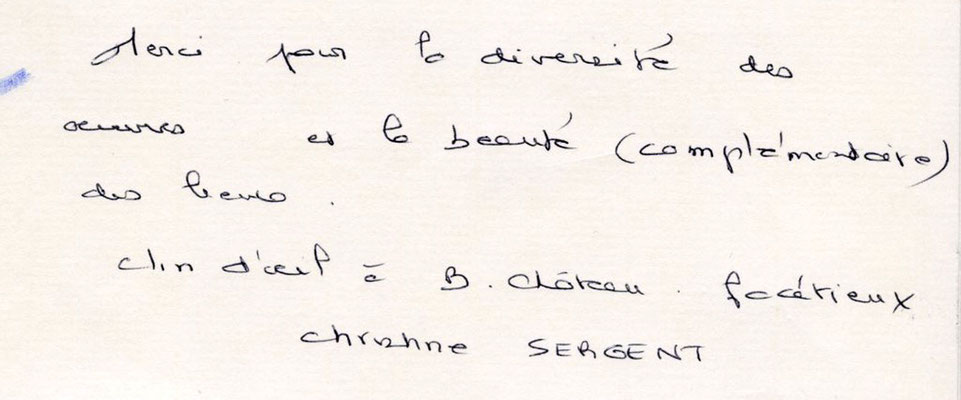 Merci pour la diversité des
œuvres et la beauté (complémentaire)
des lieux.
Clin d'œil à B. Château. facétieux
Christine SERGENT